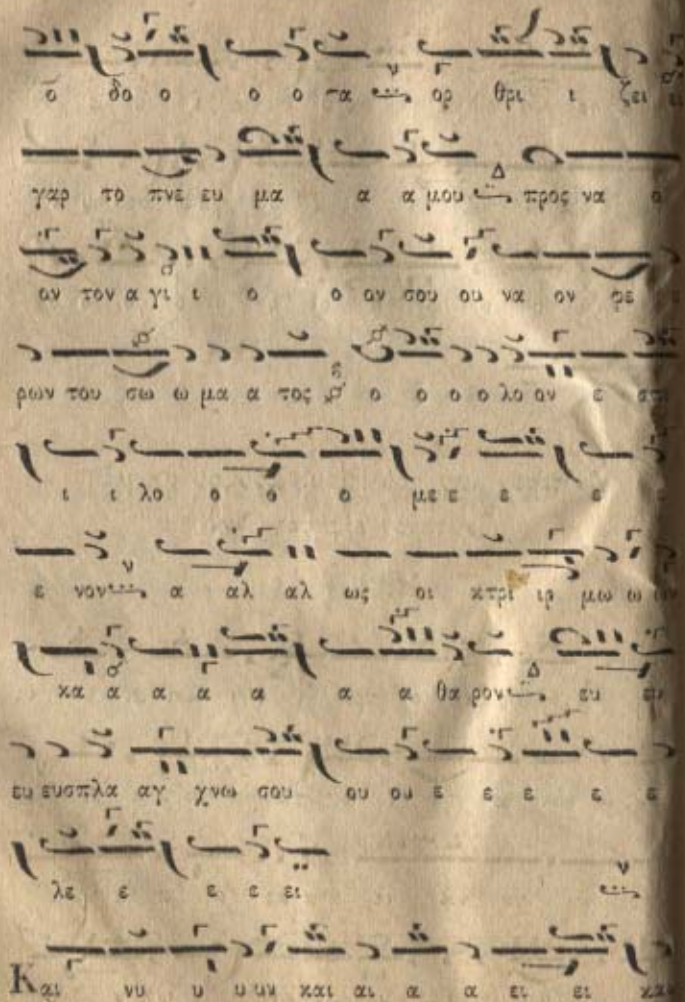 ο δο ο ο ο τα ορ θρι ι ζει ει
γαρ το πνε ευ μα α α μου προς να ο
ον τον α γι ι ο ο ον σου ου να ον φε ε
ρων του σω ω μα α τος ο ο ο ο λο ον ε σπι
ι ι λο ο ο ο με ε ε ε ε ε
ε νον α αλ αλ ως οι κτρι ιρ μω ω ων
κα α α α α α α θα ρον ευ ευ
ευ ευσπλα αγ χνω σου ου ου ε ε ε ε ε
λε ε ε ε ει
Και νυ υ υ υν και αι α α ει ει και